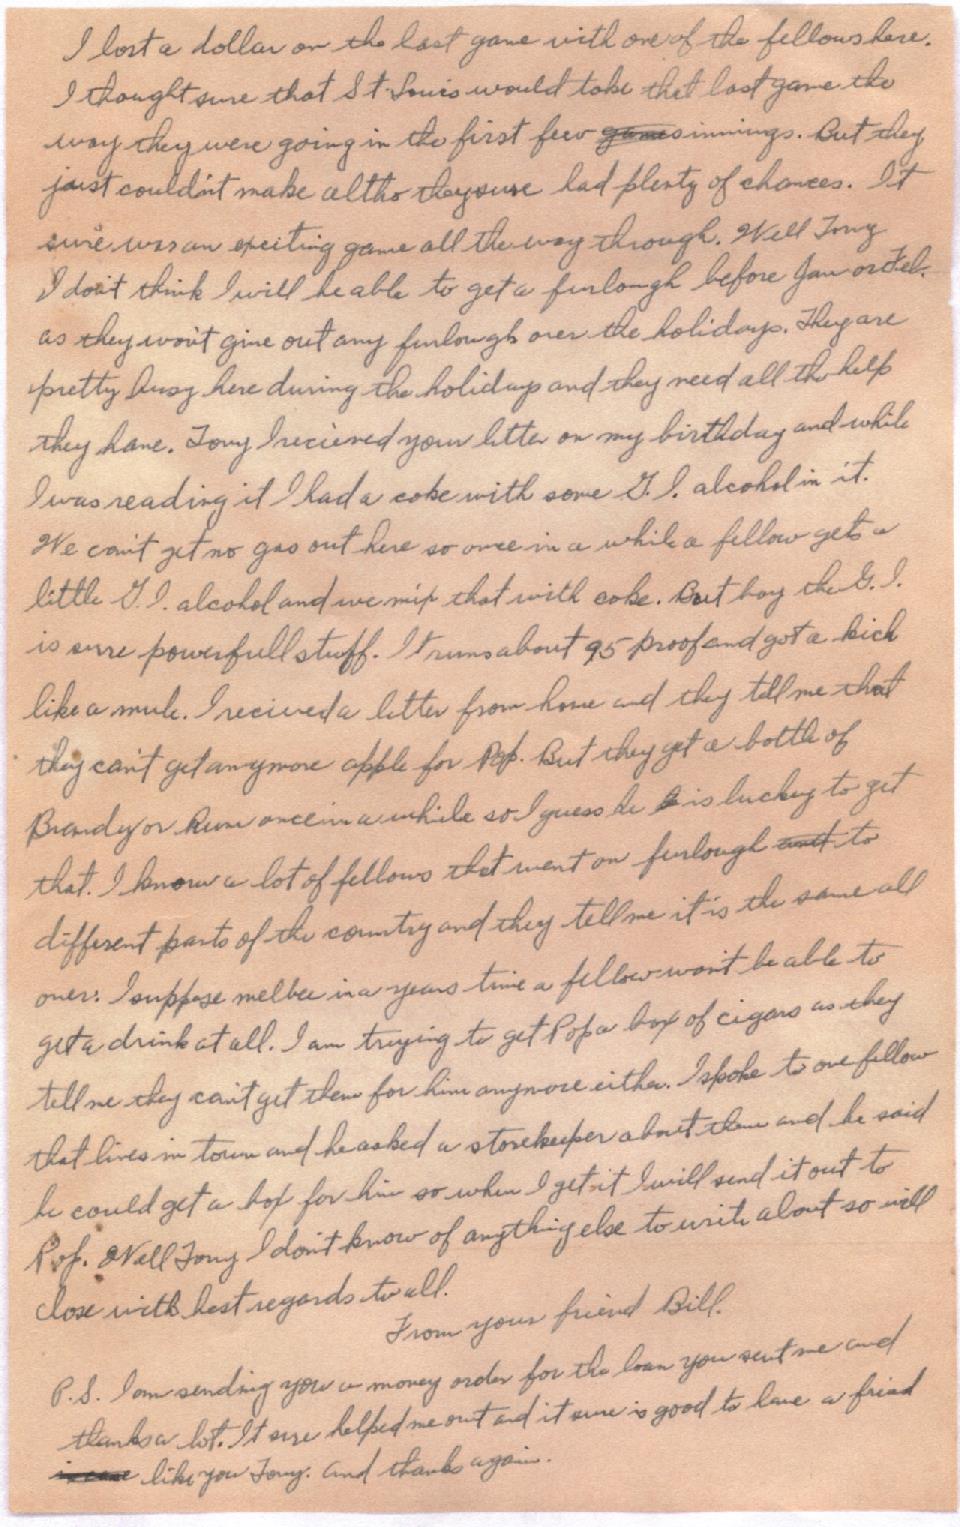 I lost a dollar on the last game with one of the fellows here.
I thought sure that St. Louis would take that last game the
way they were going in the first few games innings. But they
just couldn't make altho they sure had plenty of chances. It
sure was an exciting game all the way through. Well Tony
I don't think I will be able to get a furlough before Jan or Feb.
as they won't give out any furloughs over the holidays. They are
pretty busy here during the holidays and they need all the help
they have. Tony I recieved your letter on my birthday and while
I was reading it I had a coke with some G.I. alcohol in it.
We can't get no gas out here so once in a while a fellow gets a
little G.I. alcohol and we mix that with coke. But boy the G.I.
is sure powerfull stuff. It runs about 95 proof and got a kick
like a mule. I recived a letter from home and they tell me that
they can't get anymore apple for Pop. But they get a bottle of
Brandy or Rum once in a while so I guess he is lucky to get
that. I know a lot of fellows that went on furlough and to
different parts of the country and they tell me it is the same all
over. I suppose melbee in a years time a fellow won't be able to
get a drink at all. I am trying to get Pop a box of cigars as they
tell me they can't get them for him anymore either. I spoke to one fellow
that lives in town and he asked a storekeeper about them and he said
he could get a box for him so when I get it I will send it out to
Pop. Well Tony I don't know of anything else to write about so will
close with best regards to all.
From your friend Bill.
P.S. I am sending you a money order for the loan you sent me and
thanks a lot. It sure helped me out and it sure is good to have a friend
like you Tony. and thanks again.